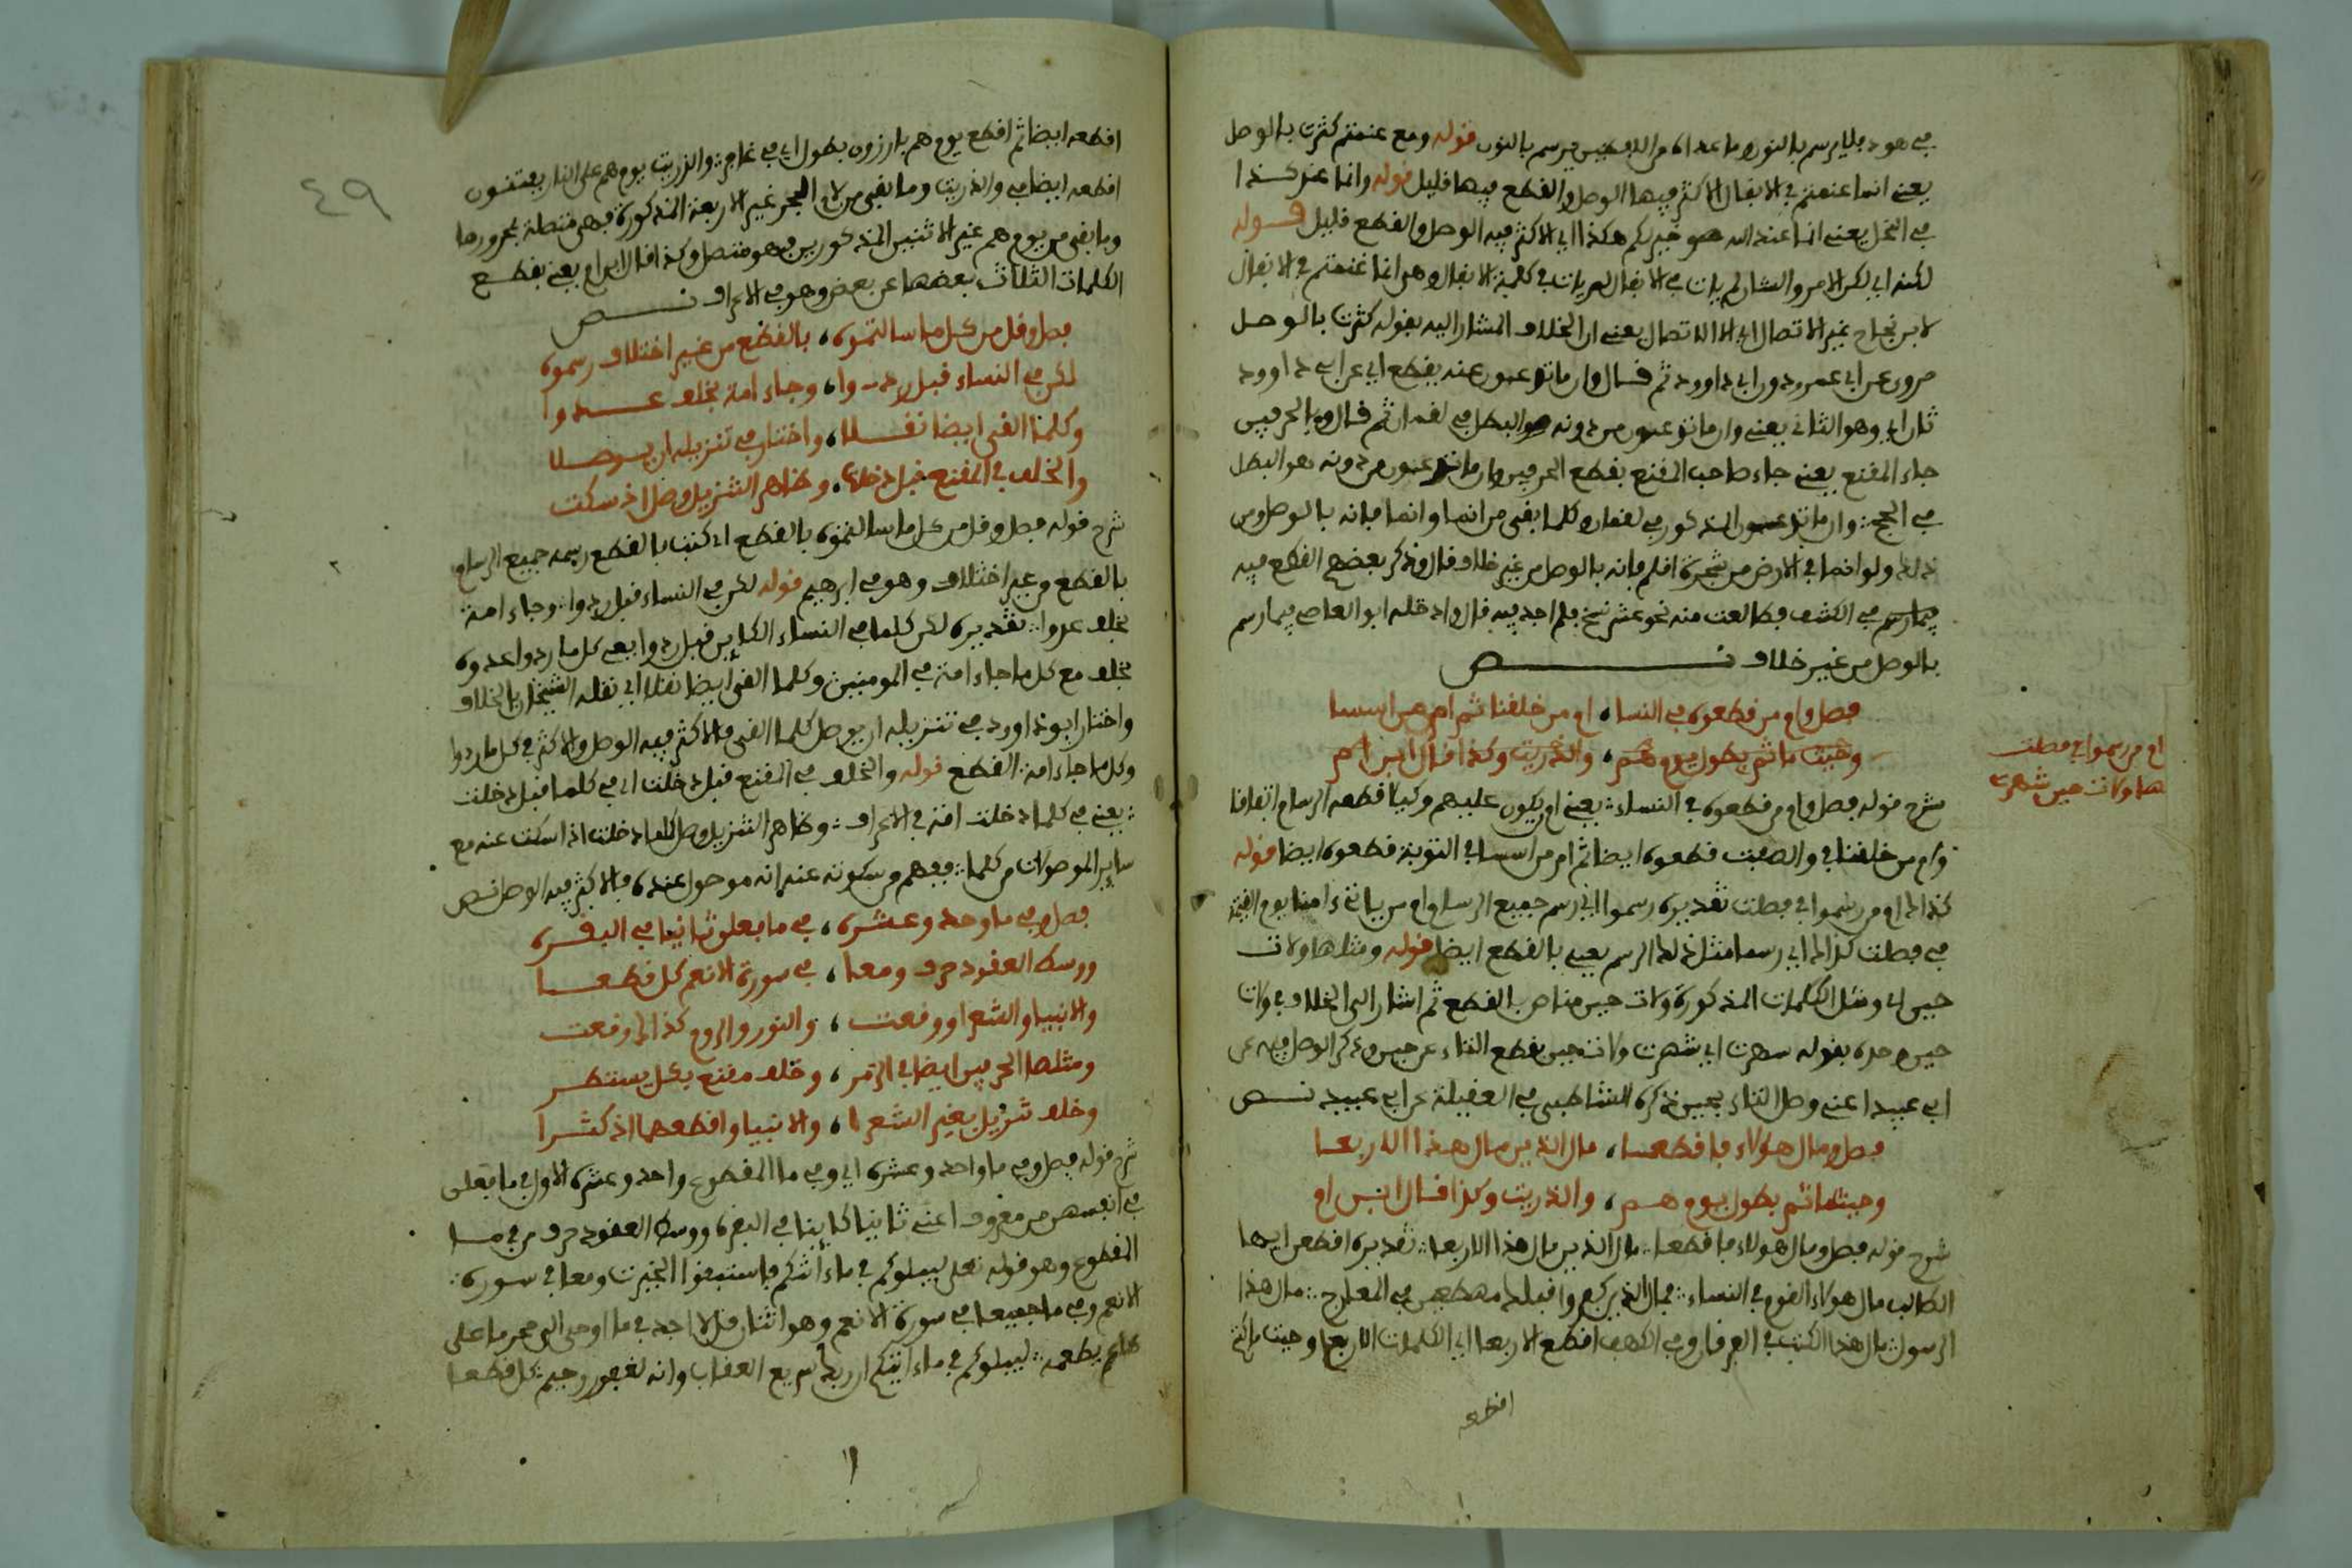 في هود فلم يرسم بالنون وما عداه من اللفظين يرسم بالنون قوله ومع غنمتم كثرت بالوصل
يعني انما غنمتم في الانفال الاكثر فيها الوصل والقطع فيها قليل قوله وانما عند كذا
في النحل يعني انما عند الله هو خير لكم هكذا اي الاكثر فيه الوصل والقطع قليل قوله
لكنه اي لكن الامر والشان لم يات في الانفال لم يات في كلمة الانفال وهي انما غنمتم في الانفال
لابن نجاح غير الاتصال اي الا الاتصال يعني ان الخلاف المشار اليه بقوله كثرت بالوصل
مروي عن ابي عمرو دون ابي داوود ثم قال وان ما تدعون عنه يقطع اي عن ابي داوود
ثان اي وهو الثاني يعني وان ما تدعون من دونه هو البطل في لقمان ثم قال وبالحرفين
جاء المقنع يعني جاء صاحب المقنع بقطع الحرفين وان ما تدعون من دونه هو البطل
في الحج وان ما تدعون المذكور في لقمان وكلما بقي من انما وانما فانه بالوصل ومن
ذلك ولو انما في الارض من شجرة اقلم فانه بالوصل من غير خلاف قال وذكر بعضهم القطع فيه
فيما رسم في الكشف فطالعت منه نحو عشر نسخ فلم اجد فيه قال وادخله ابو العاصي فيما رسم
بالوصل من غير خلاف نص
فصل وام من قطعوه في النسا، ام من خلقنا ثم ام من اسسا
وحيث ما ثم بطول يوم هم، والذريت وكذا قال ابن ام
شرح قوله فصل وام من قطعوه في النساء يعني ام من يكون عليهم وكيلا قطعه الرسام اتفاقا
وام من خلقنا في والصفت قطعوه ايضا ثم ام من اسس في التوبة قطعوه ايضا قوله
كذلك ام من رسموا في فصلت تقديره رسموا اي رسم جميع الرسام ام من ياتي ءامنا يوم القيمة
في فصلت كذلك اي رسما مثل ذلك الرسم يعني بالقطع ايضا قوله ومثلها ولات
حين اي ومثل الكلمات المذكورة ولات حين مناص بالقطع ثم اشار الى الخلاف في ولات
حين وحده بقوله شهرت اي شهرت ولات حين بقطع التاء عن حين وذكر الوصل فيه عن
ابي عبيد اعني وصل التاء بحين ذكره الشاطبي في العقيلة عن ابي عبيد نص
فصل ومال هؤلاء فاقطعا، مال الذين مال هذا الاربعا
وحيثما ثم بطول يوم هم، والذريت وكذا قال ابن ام
شرح قوله فصل ومال هؤلاء فاقطعا مال الذين مال هذا الاربعا تقديره اقطعن ايها
الطالب مال هؤلاء القوم في النساء فمال الذين كفروا قبلك مهطعين في المعارج مال هذا
الرسول مال هذا الكتب في الفرقان وفي الكهف اقطع الاربعا اي الكلمات الاربع وحيث ما كنتم
اقطعه
ام من رسموا في فصلت
ها ولات حين شهرت
٤٩
اقطعه ايضا ثم اقطع يوم هم بارزون بطول اي في غافر والذريت يوم هم على النار يفتنون
اقطعه ايضا في والذريت وما بقي من لام الجر غير الاربعة المذكورة فهي متصلة بمجرورها
وما بقي من يوم هم غير الاثنين المذكورين فهو متصل وكذا قال ابن ام يعني بقطع
الكلمات الثلاث بعضها عن بعض وهو في الاعراف نص
فصل وقل من كل ما سالتموه، بالقطع من غير اختلاف رسموه
لكن في النساء قبل ردوا، وجاء امة بخلف عدوا
وكلما القي ايضا نقلا، واختار في تنزيله ان يوصلا
والخلف في المقنع قبل دخلت، وظاهر التنزيل وصل اذ سكت
شرح قوله فصل وقل من كل ما سالتموه بالقطع اي كتب بالقطع رسمه جميع الرسام
بالقطع من غير اختلاف وهو في ابرهيم قوله لكن في النساء قبل ردوا وجاء امة
بخلف عدوا تقديره لكن كلما في النساء الكاين قبل ردوا يعني كل ما ردوا عدوه
بخلف مع كل ما جاء امة في المومنين وكلما القي ايضا نقلا اي نقله الشيخان بالخلاف
واختار ابو داوود في تنزيله ان يوصل كلما القي والاكثر فيه الوصل والاكثر في كل ما ردوا
وكل ما جاء امة القطع قوله والخلف في المقنع قبل دخلت اي في كلما قبل دخلت
يعني في كلما دخلت امة في الاعراف وظاهر التنزيل وصل كلما دخلت اذا سكت عنه مع
ساير الموصولات من كلما فيفهم من سكوته عنه انه موصول عنده والاكثر فيه الوصل نص
فصل وفي ما واحد وعشره، في ما فعلن ثانيا في البقره
ووسط العقود حرف ومعا، في سورة الانعم كل قطعا
والانبيا والشعرا ووقعت، والنور والروم كذاك وقعت
ومثلها الحرفين ايضا في الزمر، وخلف مقنع بكل مستطر
وخلف تنزيل بغير الشعرا، والانبيا واقطعهما اذ كثرا
شرح قوله فصل وفي ما واحد وعشره اي وفي ما المقطوع واحد وعشره الاول في ما فعلن
في انفسهن من معروف اعني ثانيا كاينا في البقره ووسط العقود حرف من في ما
المقطوع وهو قوله تعلى ليبلوكم في ما ءاتيكم فاستبقوا الخيرت ومعا في سورة
الانعم وفي ما جميعا في سورة الانعم وهو اثنان قل لا اجد في ما اوحي الي محرما على
طاعم يطعمه ليبلوكم في ما ءاتيكم ان ربك سريع العقاب وانه لغفور رحيم كل قطعا